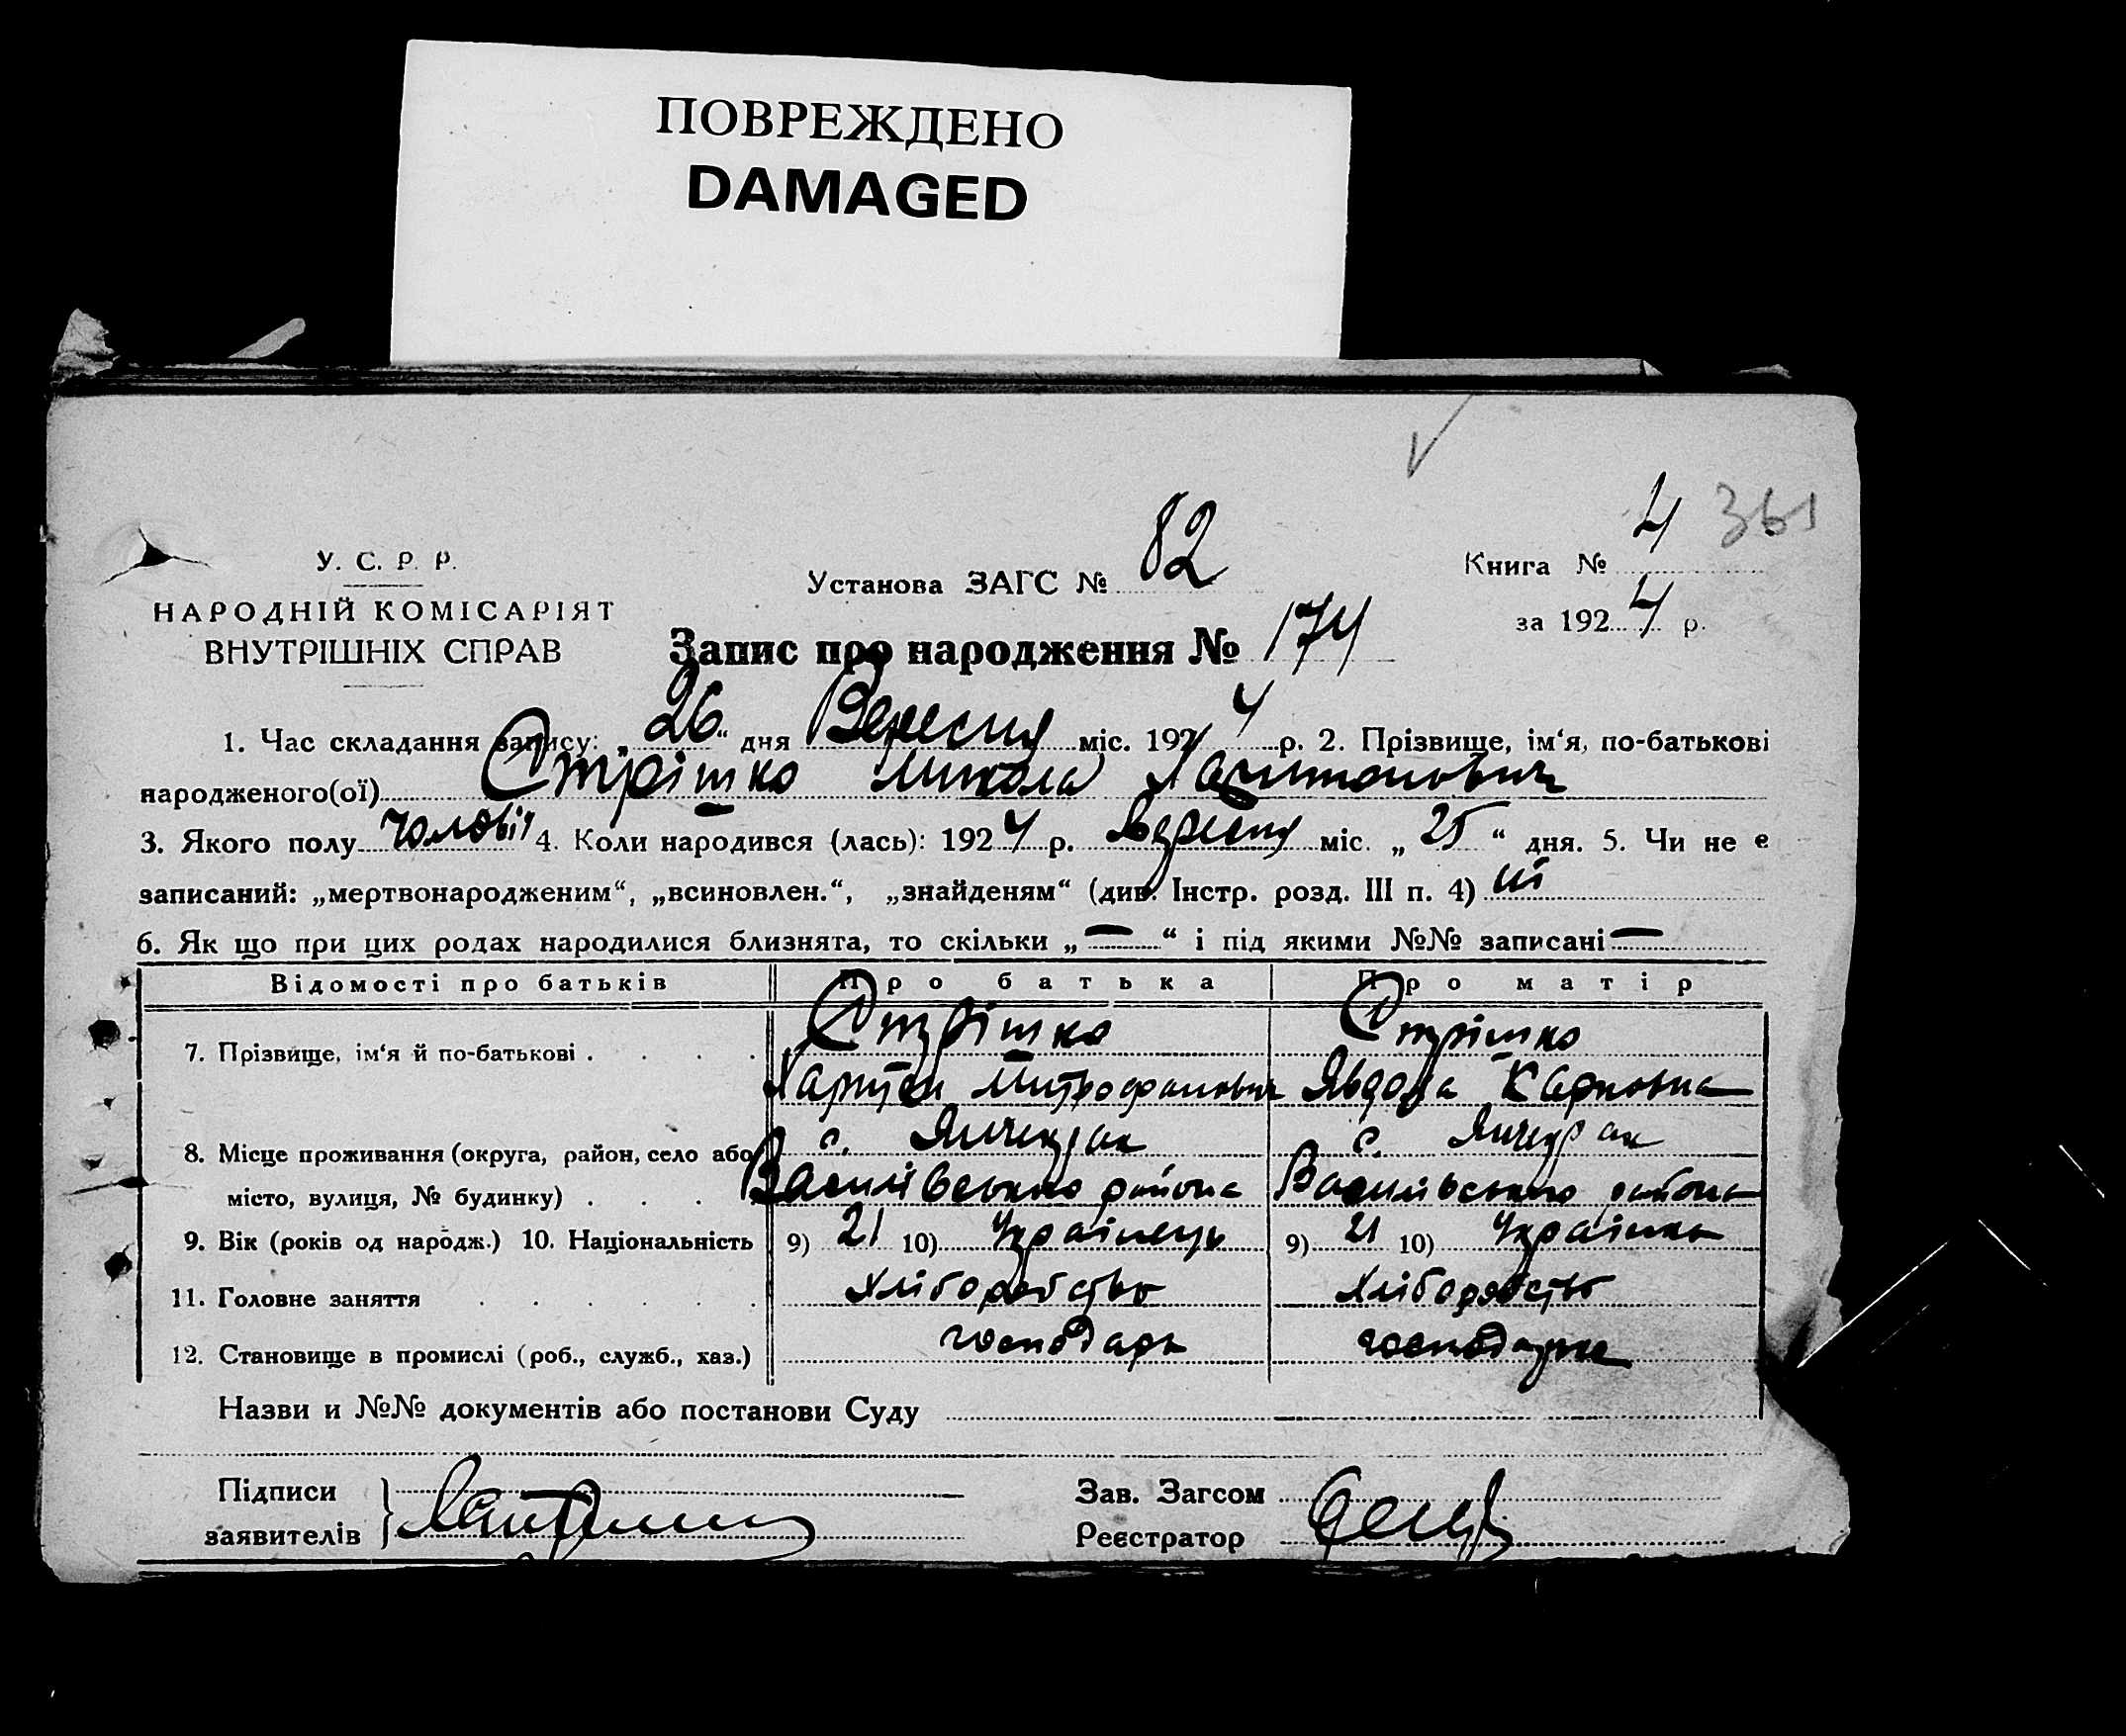 ПОВРЕЖДЕНО
DAMAGED
4 361
У. С. Р. Р.
НАРОДНІЙ КОМІСАРІЯТ
ВНУТРІШНІХ СПРАВ
Установа ЗАГС № 82
Книга №
за 1924 р.
Запис про народження № 174
1. Час складання запису: „26“ дня Вересня міс. 1924 р. 2. Прізвище, ім‘я, по-батькові
народженого(ої) Стрішко Микола
3. Якого полу чоловіч 4. Коли народився (лась): 1924 р. Вересня міс. „25“ дня. 5. Чи не є
записаний: „мертвонародженим“, „всиновлен.“, „знайденям“ (див. Інстр. розд. III п. 4) ні
6. Як що при цих родах народилися близнята, то скільки „—“ і під якими №№ записані —
Відомості про батьків Про батька Про матір
7. Прізвище, ім‘я й по-батькові . . . . Стрішко Стрішко
Митрофанович Явдоха Карповна
8. Місце проживання (округа, район, село або с. Янчекрак с. Янчекрак
місто, вулиця, № будинку) . . . Василівського района Василівського района
9. Вік (років од народж.) 10. Національність 9) 21 10) Українець 9) 21 10) Українка
11. Головне заняття . . . . . . Хліборобство Хліборобство
12. Становище в промислі (роб., служб., хаз.) господарь господарка
Назви и №№ документів або постанови Суду
Підписи
заявителів
Зав. Загсом
Реєстратор